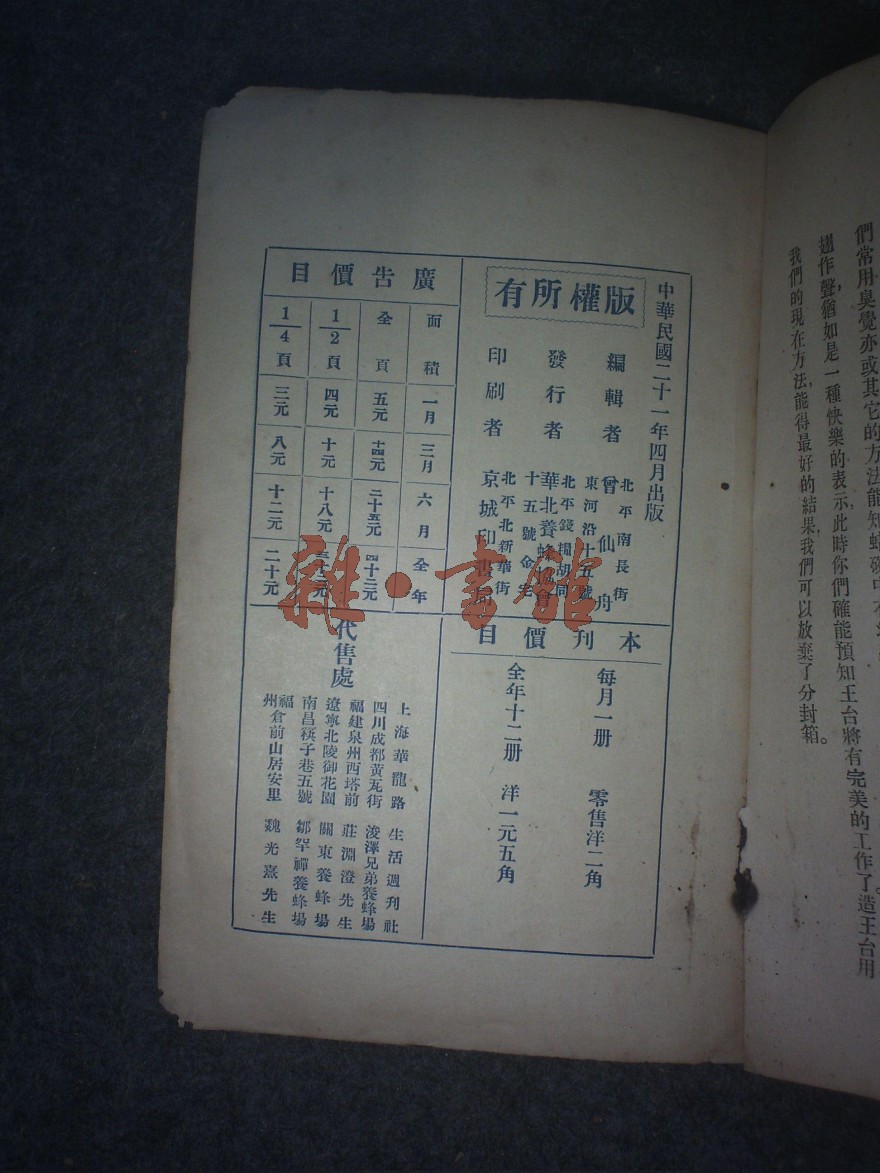 們常用臭覺亦或其它的方法能知蜂
作聲猶如是一種快樂的表示,此時你們確能預知王台將有完美的工作了。造王台用
我們的現在方法,能得最好的結果,我們可以放棄了分封箱。
中華民國二十一年四月出版
版權所有
編輯者 北平南長街東河沿十五號 曾仙舟
發行者 北平錢糧胡同十五號金宅 華北養蜂
印刷者 北平北新華街 京城印書局
本刊價目
每月一册 零售洋二角
全年十二册 洋一元五角
廣告價目
面積 一月 三月 六月 全年
全頁 五元 十四元 二十五元 四十二元
1/2頁 四元 十元 十八元
1/4頁 三元 八元 十二元 二十元
代售處
上海華龍路 生活週刊社
四川成都黃瓦街 浚澤兄弟養蜂場
福建泉州西塔前 莊淵澄先生
遼寧北陵御花園 關東養蜂場
南昌筷子巷五號 鄒罕禪養蜂場
福州倉前山居安里 魏光熹先生
雜·書館